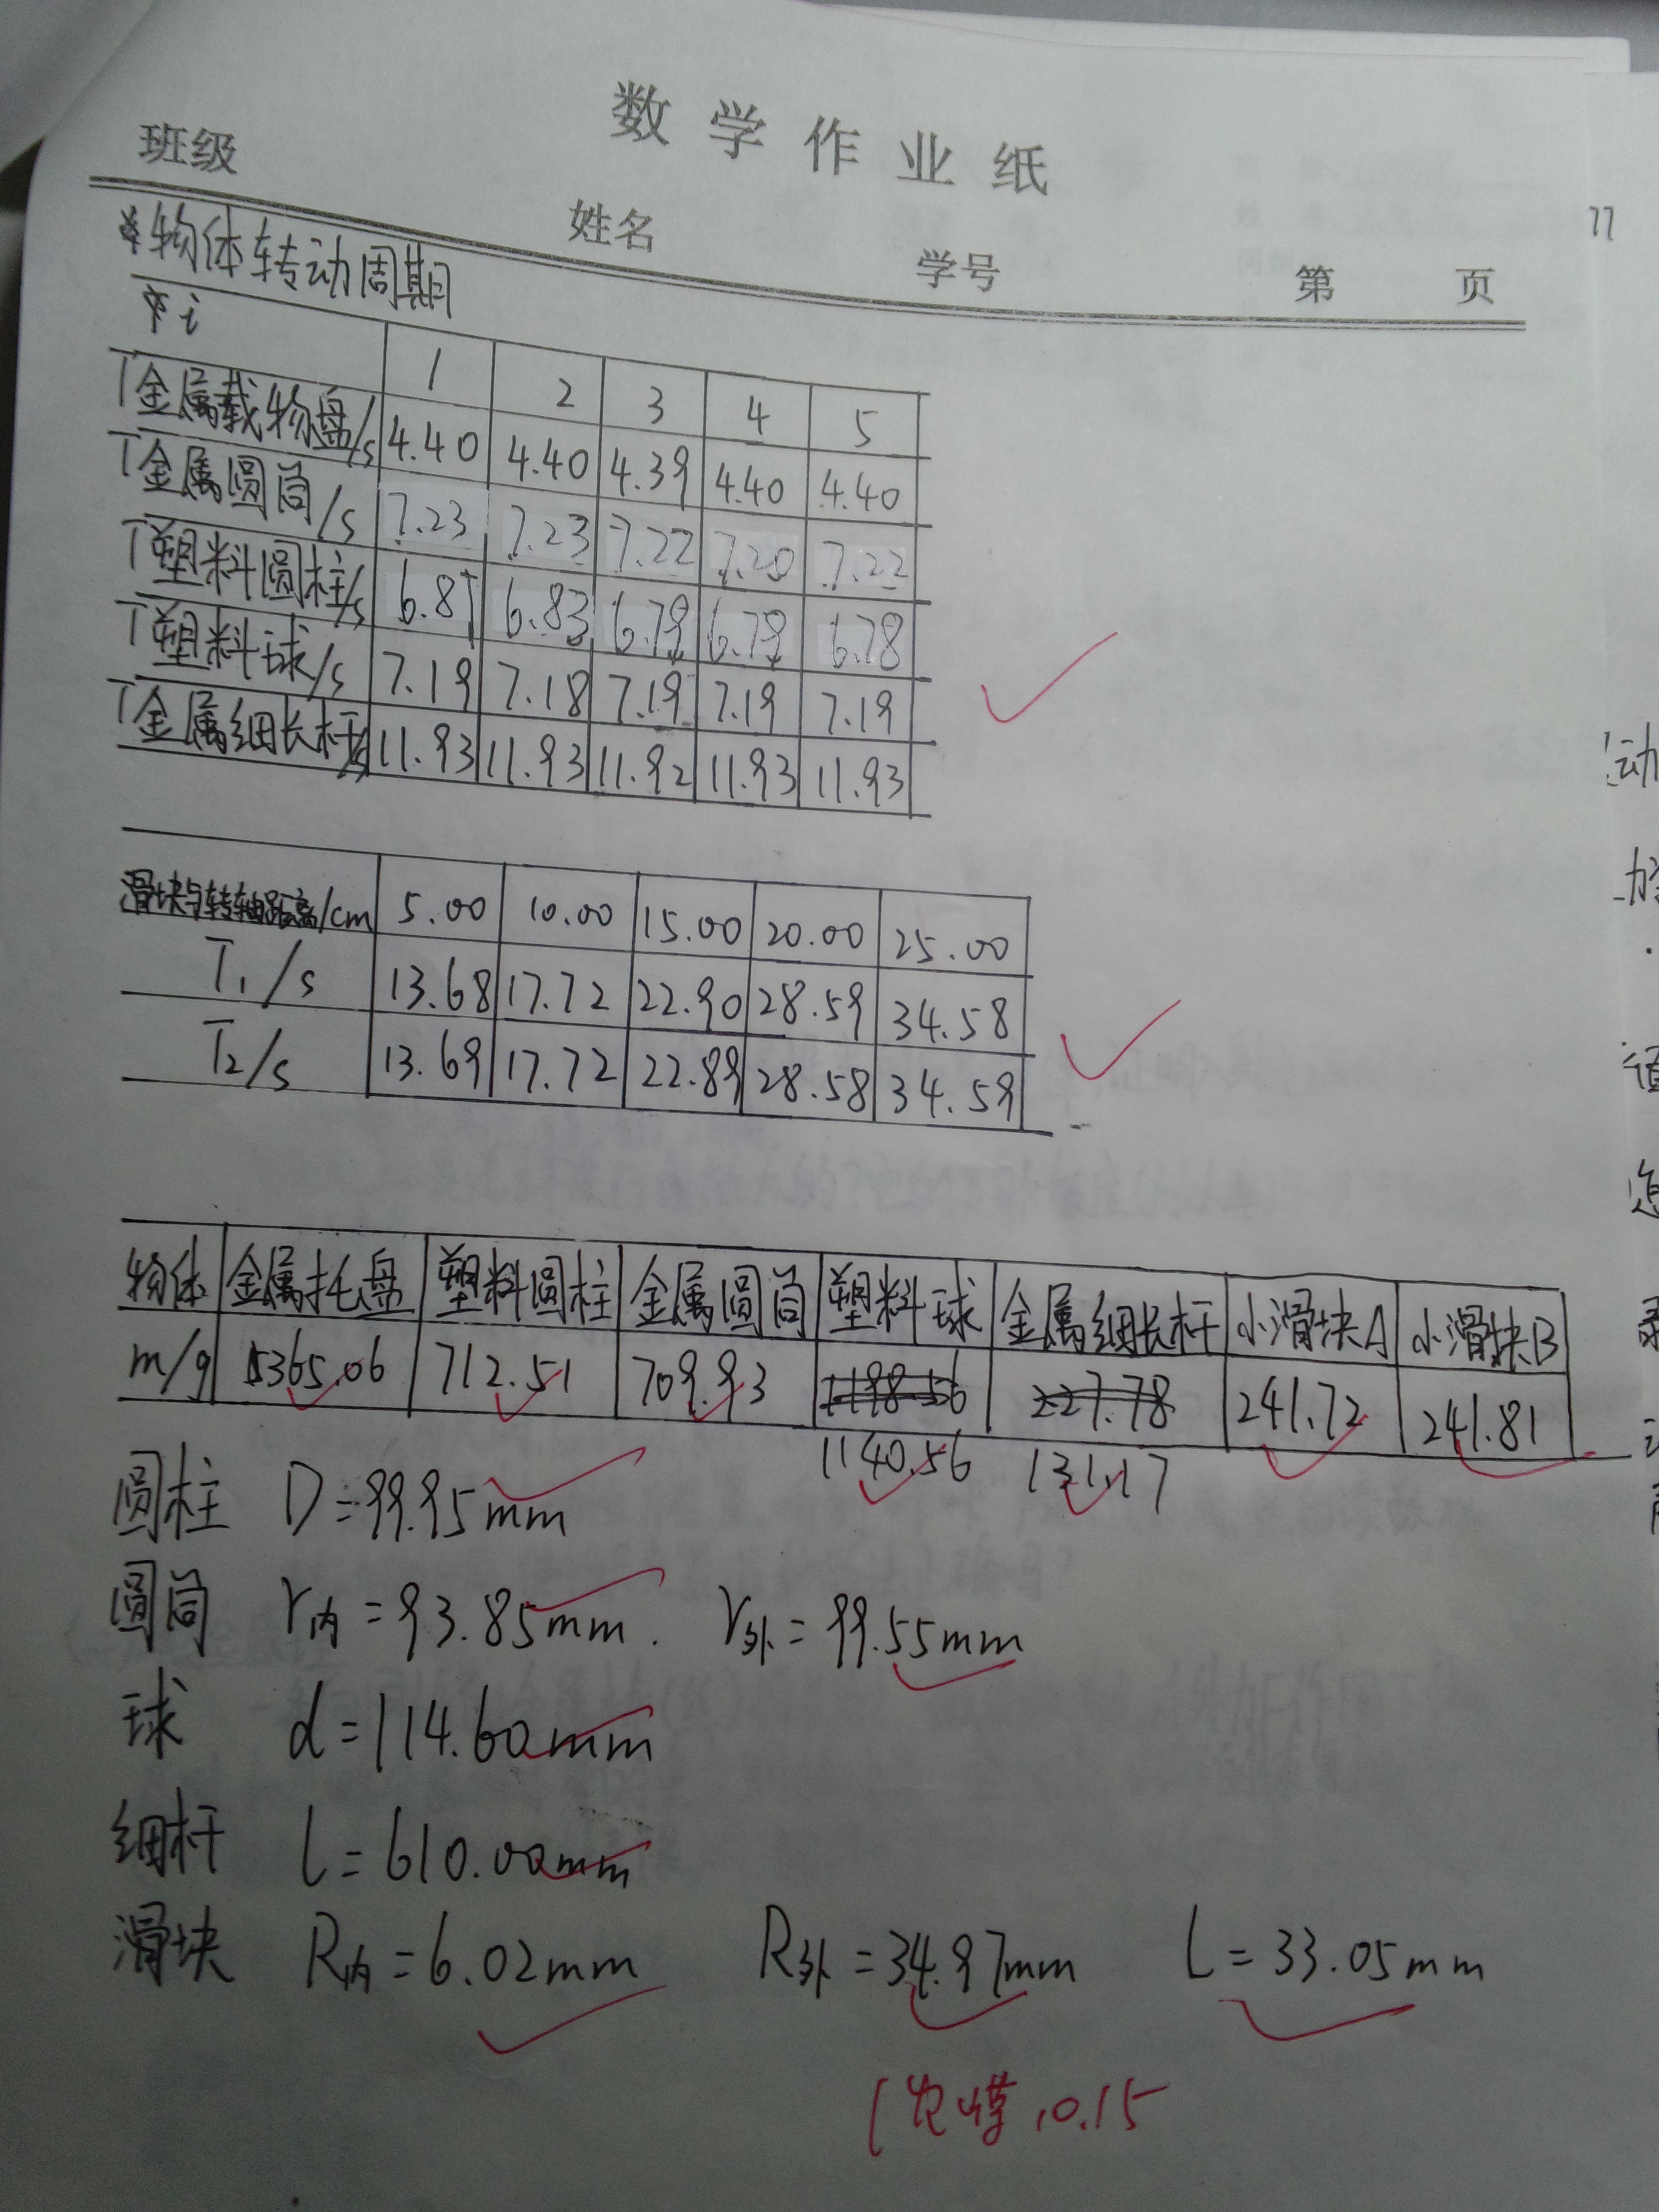 数学作业纸
班级 姓名 学号 第 页
77
物体转动周期
i 1 2 3 4 5
T金属载物盘/s 4.40 4.40 4.39 4.40 4.40
T金属圆筒/s 7.23 7.23 7.22 7.20 7.22
T塑料圆柱/s 6.81 6.83 6.79 6.79 6.78
T塑料球/s 7.19 7.18 7.19 7.19 7.19
T金属细长杆/s 11.93 11.93 11.92 11.93 11.93
滑块与转轴距离/cm 5.00 10.00 15.00 20.00 25.00
T₁/s 13.68 17.72 22.90 28.59 34.58
T₂/s 13.69 17.72 22.89 28.58 34.59
物体 金属托盘 塑料圆柱 金属圆筒 塑料球 金属细长杆 小滑块A 小滑块B
m/g 5365.06 712.51 709.93 1198.56 227.78 241.72 241.81
1140.56 131.17
圆柱 D=99.95mm
圆筒 r内=93.85mm. r外=99.55mm
球 d=114.60mm
细杆 l=610.00mm
滑块 R内=6.02mm R外=34.97mm L=33.05mm
10.15